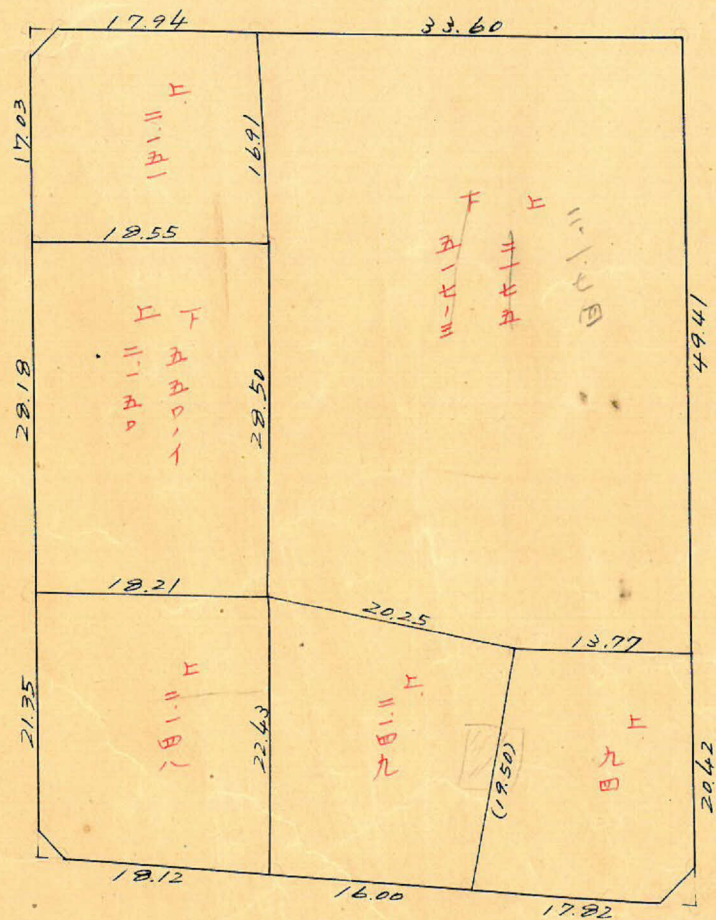 17.94
33.60
17.03
上
二・一五一
16.91
18.55
二・一・七四
上
二一七五
下
五一七一三
49.41
28.18
下 五五〇ノイ
上 二・一五〇
28.50
18.21
20.25
13.77
21.35
上
二・一四八
22.43
上
二・一四九
(19.50)
上
九四
20.42
18.12
16.00
17.82